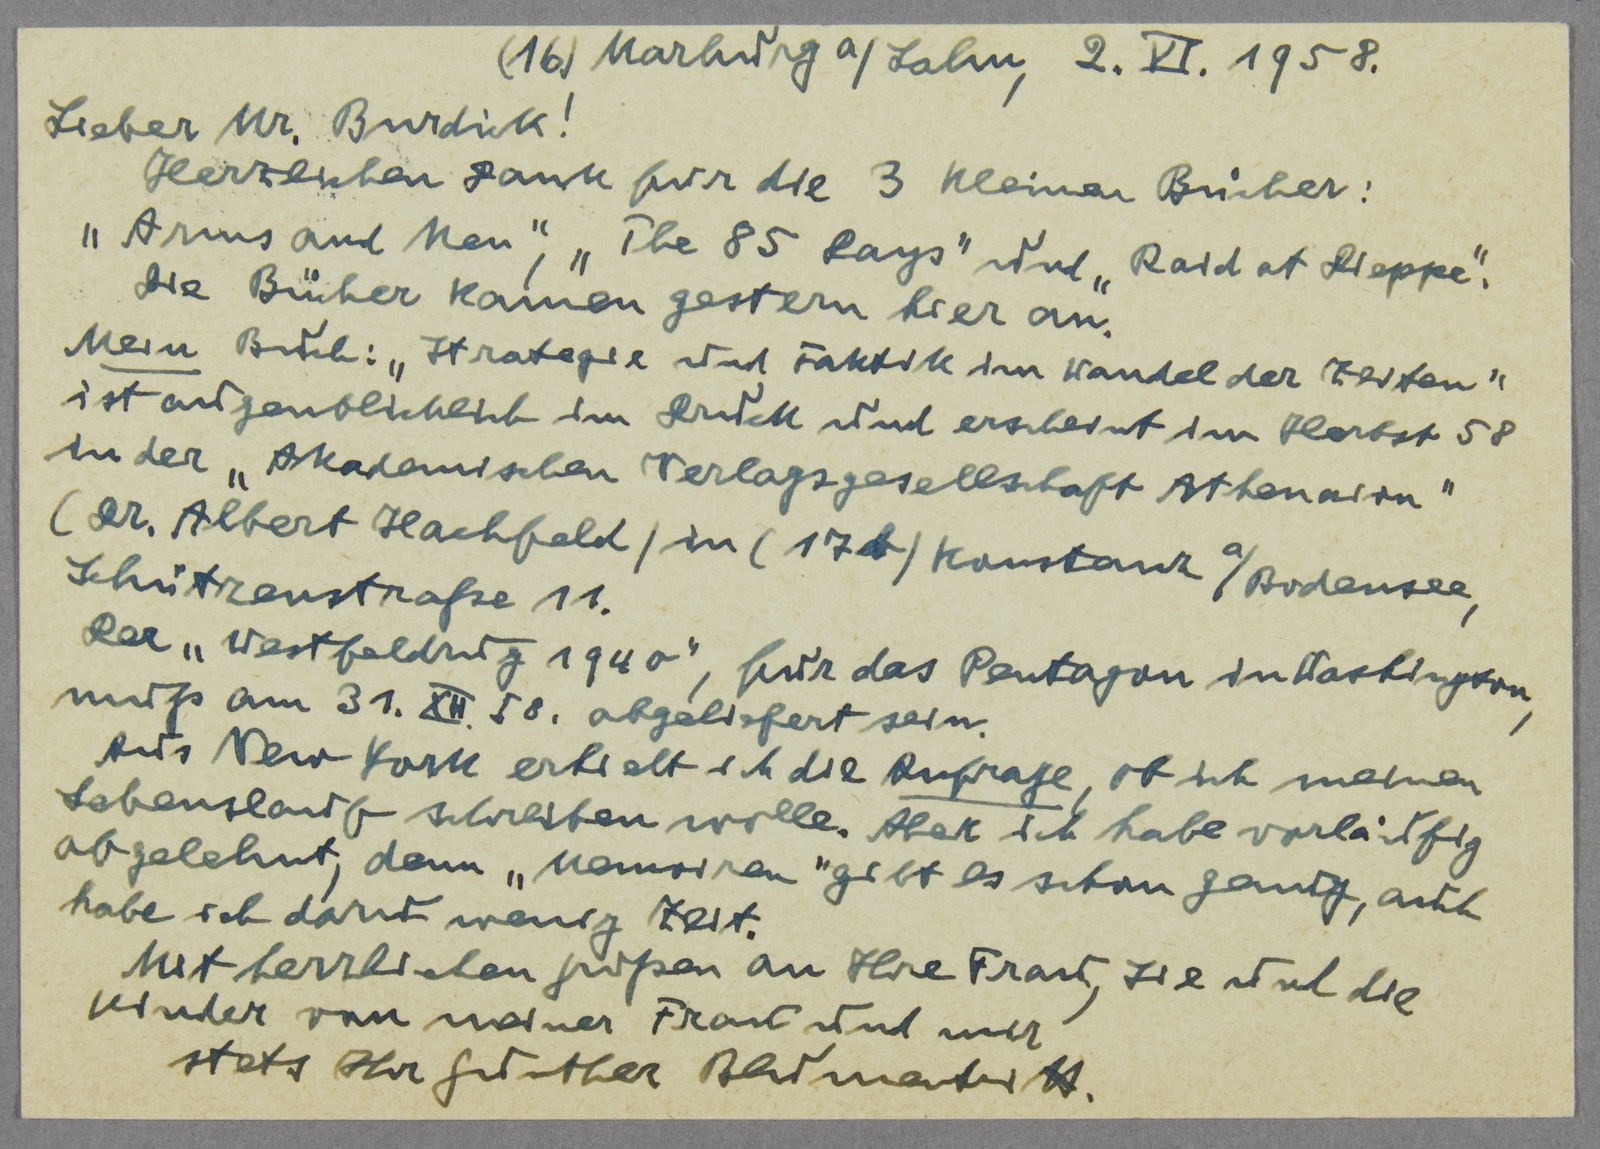 (16) Marburg a/Lahn, 2. VI. 1958.
Lieber Mr. Burdick!
Herzlichen Dank für die 3 kleinen Bücher:
„Arms and Men", „The 85 Days" und „Raid at Dieppe".
Die Bücher kamen gestern hier an.
Mein Buch: „Strategie und Taktik im Wandel der Zeiten"
ist augenblicklich im Druck und erscheint im Herbst 58
in der „Akademischen Verlagsgesellschaft Athenaion"
(Dr. Albert Hachfeld) in (17b) Konstanz a/Bodensee,
Schützenstraße 11.
Der „Westfeldzug 1940", für das Pentagon in Washington,
muß am 31. XII. 58. abgeliefert sein.
Aus New York erhielt ich die Anfrage, ob ich meinen
Lebenslauf schreiben wolle. Aber ich habe vorläufig
abgelehnt, denn „Memoiren" gibt es schon genug, auch
habe ich dazu wenig Zeit.
Mit herzlichen Grüßen an Ihre Frau, Sie und die
Kinder von meiner Frau und mir
stets Ihr Günther Blumentritt.